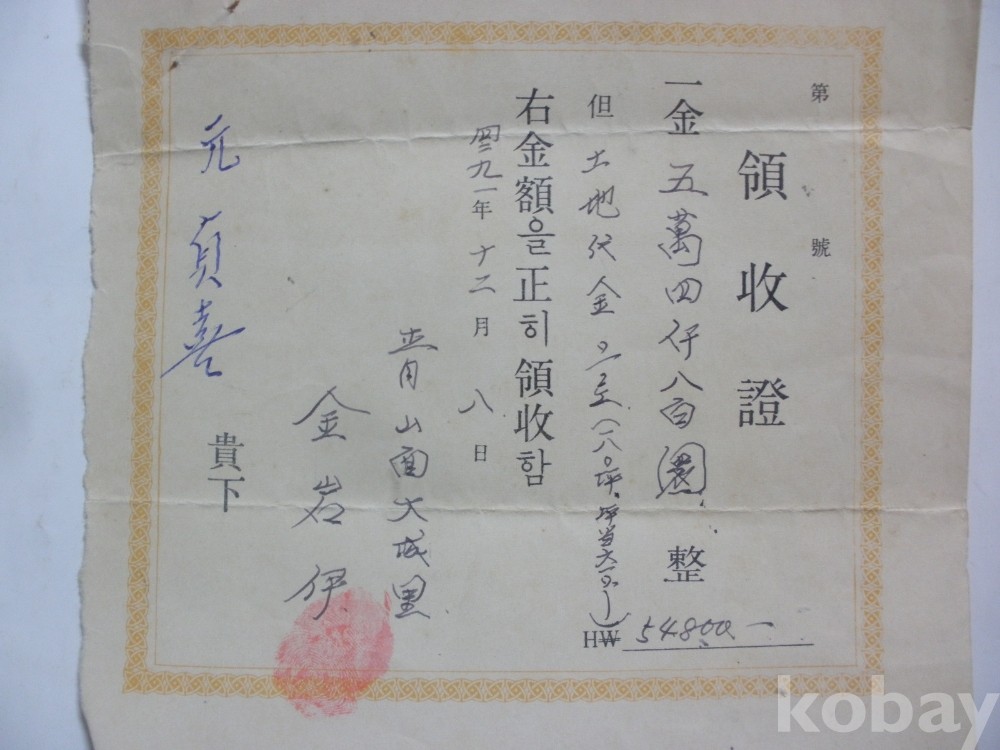 第 號
領收證
一金 五萬四仟八百圜 整
HW 54800-
但 土地代金
右金額을正히領收함
四二九一年 十二月 八日
靑山面大城里
金岩伊
元貞喜 貴下
kobay